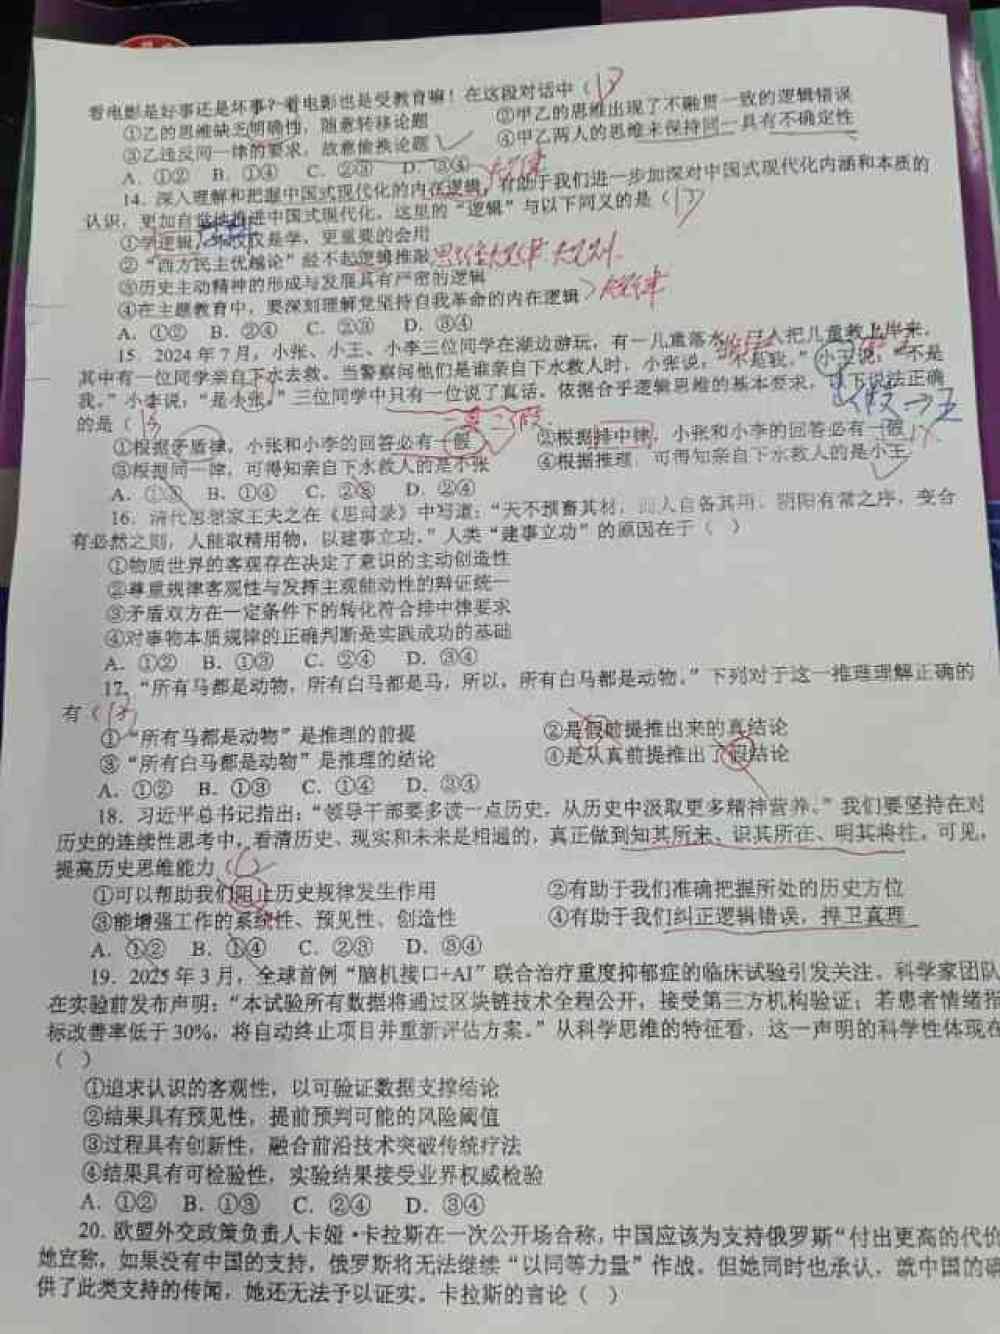 看电影是好事还是坏事?看电影也是受教育嘛！在这段对话中（ ）
①乙的思维缺乏明确性，随意转移论题 ②甲乙的思维出现了不融贯一致的逻辑错误
③乙违反同一律的要求，故意偷换论题 ④甲乙两人的思维未保持同一具有不确定性
A．①② B．①④ C．②③ D．③④
14．深入理解和把握中国式现代化的内在逻辑，有助于我们进一步加深对中国式现代化内涵和本质的
认识，更加自觉地推进中国式现代化。这里的“逻辑”与以下同义的是（ ）
①学逻辑，不仅仅是学，更重要的会用
②“西方民主优越论”经不起逻辑推敲 思维规律规则
③历史主动精神的形成与发展具有严密的逻辑
④在主题教育中，要深刻理解党坚持自我革命的内在逻辑 规律
A．①② B．②④ C．②③ D．③④
15．2024年7月，小张、小王、小李三位同学在湖边游玩，有一儿童落水，人把儿童救上岸来，
其中有一位同学亲自下水去救。当警察问他们是谁亲自下水救人时，小张说，“不是我。”小王说，“不是
我。”小李说，“是小张。”三位同学中只有一位说了真话。依据合乎逻辑思维的基本要求，以下说法正确
的是（ ）
①根据矛盾律，小张和小李的回答必有一假 ②根据排中律，小张和小李的回答必有一假
③根据同一律，可得知亲自下水救人的是小张 ④根据推理，可得知亲自下水救人的是小王
A．①③ B．①④ C．②③ D．②④
16．清代思想家王夫之在《思问录》中写道：“天不预畜其材，而人自备其用，阴阳有常之序，变合
有必然之则，人能取精用物，以建事立功。”人类“建事立功”的原因在于（ ）
①物质世界的客观存在决定了意识的主动创造性
②尊重规律客观性与发挥主观能动性的辩证统一
③矛盾双方在一定条件下的转化符合排中律要求
④对事物本质规律的正确判断是实践成功的基础
A．①② B．①③ C．②④ D．③④
17．“所有马都是动物，所有白马都是马，所以，所有白马都是动物。”下列对于这一推理理解正确的
有（ ）
①“所有马都是动物”是推理的前提 ②是假前提推出来的真结论
③“所有白马都是动物”是推理的结论 ④是从真前提推出了假结论
A．①② B．①③ C．①④ D．③④
18．习近平总书记指出：“领导干部要多读一点历史，从历史中汲取更多精神营养。”我们要坚持在对
历史的连续性思考中，看清历史、现实和未来是相通的，真正做到知其所来、识其所在、明其将往。可见，
提高历史思维能力（ ）
①可以帮助我们阻止历史规律发生作用 ②有助于我们准确把握所处的历史方位
③能增强工作的系统性、预见性、创造性 ④有助于我们纠正逻辑错误，捍卫真理
A．①② B．①④ C．②③ D．③④
19．2025年3月，全球首例“脑机接口+AI”联合治疗重度抑郁症的临床试验引发关注。科学家团队
在实验前发布声明：“本试验所有数据将通过区块链技术全程公开，接受第三方机构验证；若患者情绪指
标改善率低于30%，将自动终止项目并重新评估方案。”从科学思维的特征看，这一声明的科学性体现在
（ ）
①追求认识的客观性，以可验证数据支撑结论
②结果具有预见性，提前预判可能的风险阈值
③过程具有创新性，融合前沿技术突破传统疗法
④结果具有可检验性，实验结果接受业界权威检验
A．①② B．①③ C．②④ D．③④
20．欧盟外交政策负责人卡娅·卡拉斯在一次公开场合称，中国应该为支持俄罗斯“付出更高的代价
她宣称，如果没有中国的支持，俄罗斯将无法继续“以同等力量”作战。但她同时也承认，就中国的确
供了此类支持的传闻，她还无法予以证实。卡拉斯的言论（ ）